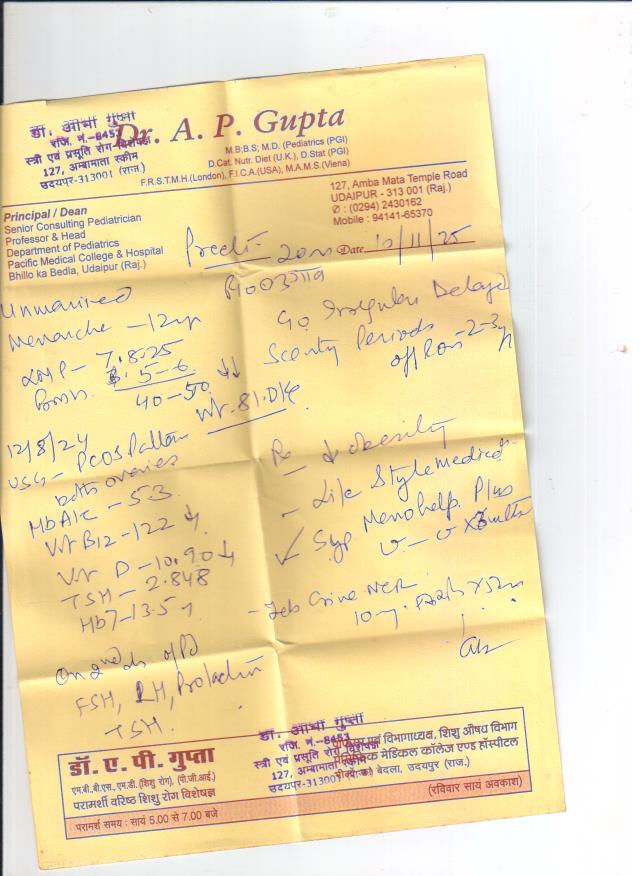 डा. आभा गुप्ता
रजि. नं.-8453
स्त्री एवं प्रसूति रोग विशेषज्ञ
127, अम्बामाता स्कीम
उदयपुर-313001 (राज.)
Dr. A. P. Gupta
M.B;B.S; M.D. (Pediatrics (PGI)
D.Cat. Nutr. Diet (U.K.), D.Stat (PGI)
F.R.S.T.M.H.(London), F.I.C.A.(USA), M.A.M.S.(Viena)
127, Amba Mata Temple Road
UDAIPUR - 313 001 (Raj.)
✆ : (0294) 2430162
Mobile : 94141-65370
Principal / Dean
Senior Consulting Pediatrician
Professor & Head
Department of Pediatrics
Pacific Medical College & Hospital
Bhillo ka Bedla, Udaipur (Raj.)
Date 10/11/25
Unmarried
Menarche - 12
LMP - 7.8.25
5-6
40-50 ↓↓
Wt. 81.0 kg
c/o Irregular Delayed
Scanty Periods
off & on - 2-3
12/8/24
USG - PCOS Pattern
both ovaries
HbA1c - 5.3
Vit B12 - 122 ↓
Vit D - 10.90 ↓
TSH - 2.848
- 13.5
↓ obesity
- Life Style
✓ Syp. Menohelp Plus
On 2nd day of Pd
FSH, LH, Prolactin
TSH.
डा. आभा गुप्ता
रजि. नं.-8453
स्त्री एवं प्रसूति रोग विशेषज्ञ
127, अम्बामाता स्कीम
उदयपुर-313001 (राज.)
डॉ. ए. पी. गुप्ता
एम.बी.बी.एस., एम.डी. (शिशु रोग), (पी.जी.आई.)
परामर्शी वरिष्ठ शिशु रोग विशेषज्ञ
एवं विभागाध्यक्ष, शिशु औषध विभाग
मेडिकल कॉलेज एण्ड हॉस्पीटल
बेदला, उदयपुर (राज.)
परामर्श समय : सायं 5.00 से 7.00 बजे
(रविवार सायं अवकाश)